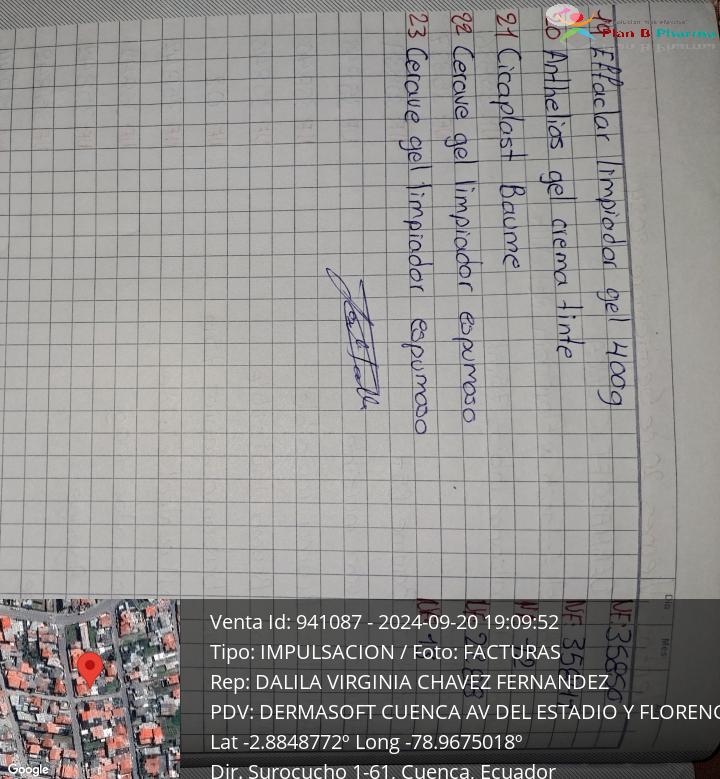 Plan B Pharma
19 Effaclar limpiador gel 400g
20 Anthelios gel crema tinte
21 Cicaplast Baume
22 Cerave gel limpiador espumoso
23 Cerave gel limpiador espumoso
Venta Id: 941087 - 2024-09-20 19:09:52
Tipo: IMPULSACION / Foto: FACTURAS
Rep: DALILA VIRGINIA CHAVEZ FERNANDEZ
PDV: DERMASOFT CUENCA AV DEL ESTADIO Y FLORENC
Lat -2.8848772º Long -78.9675018º
Dir. Surocucho 1-61, Cuenca, Ecuador
Google